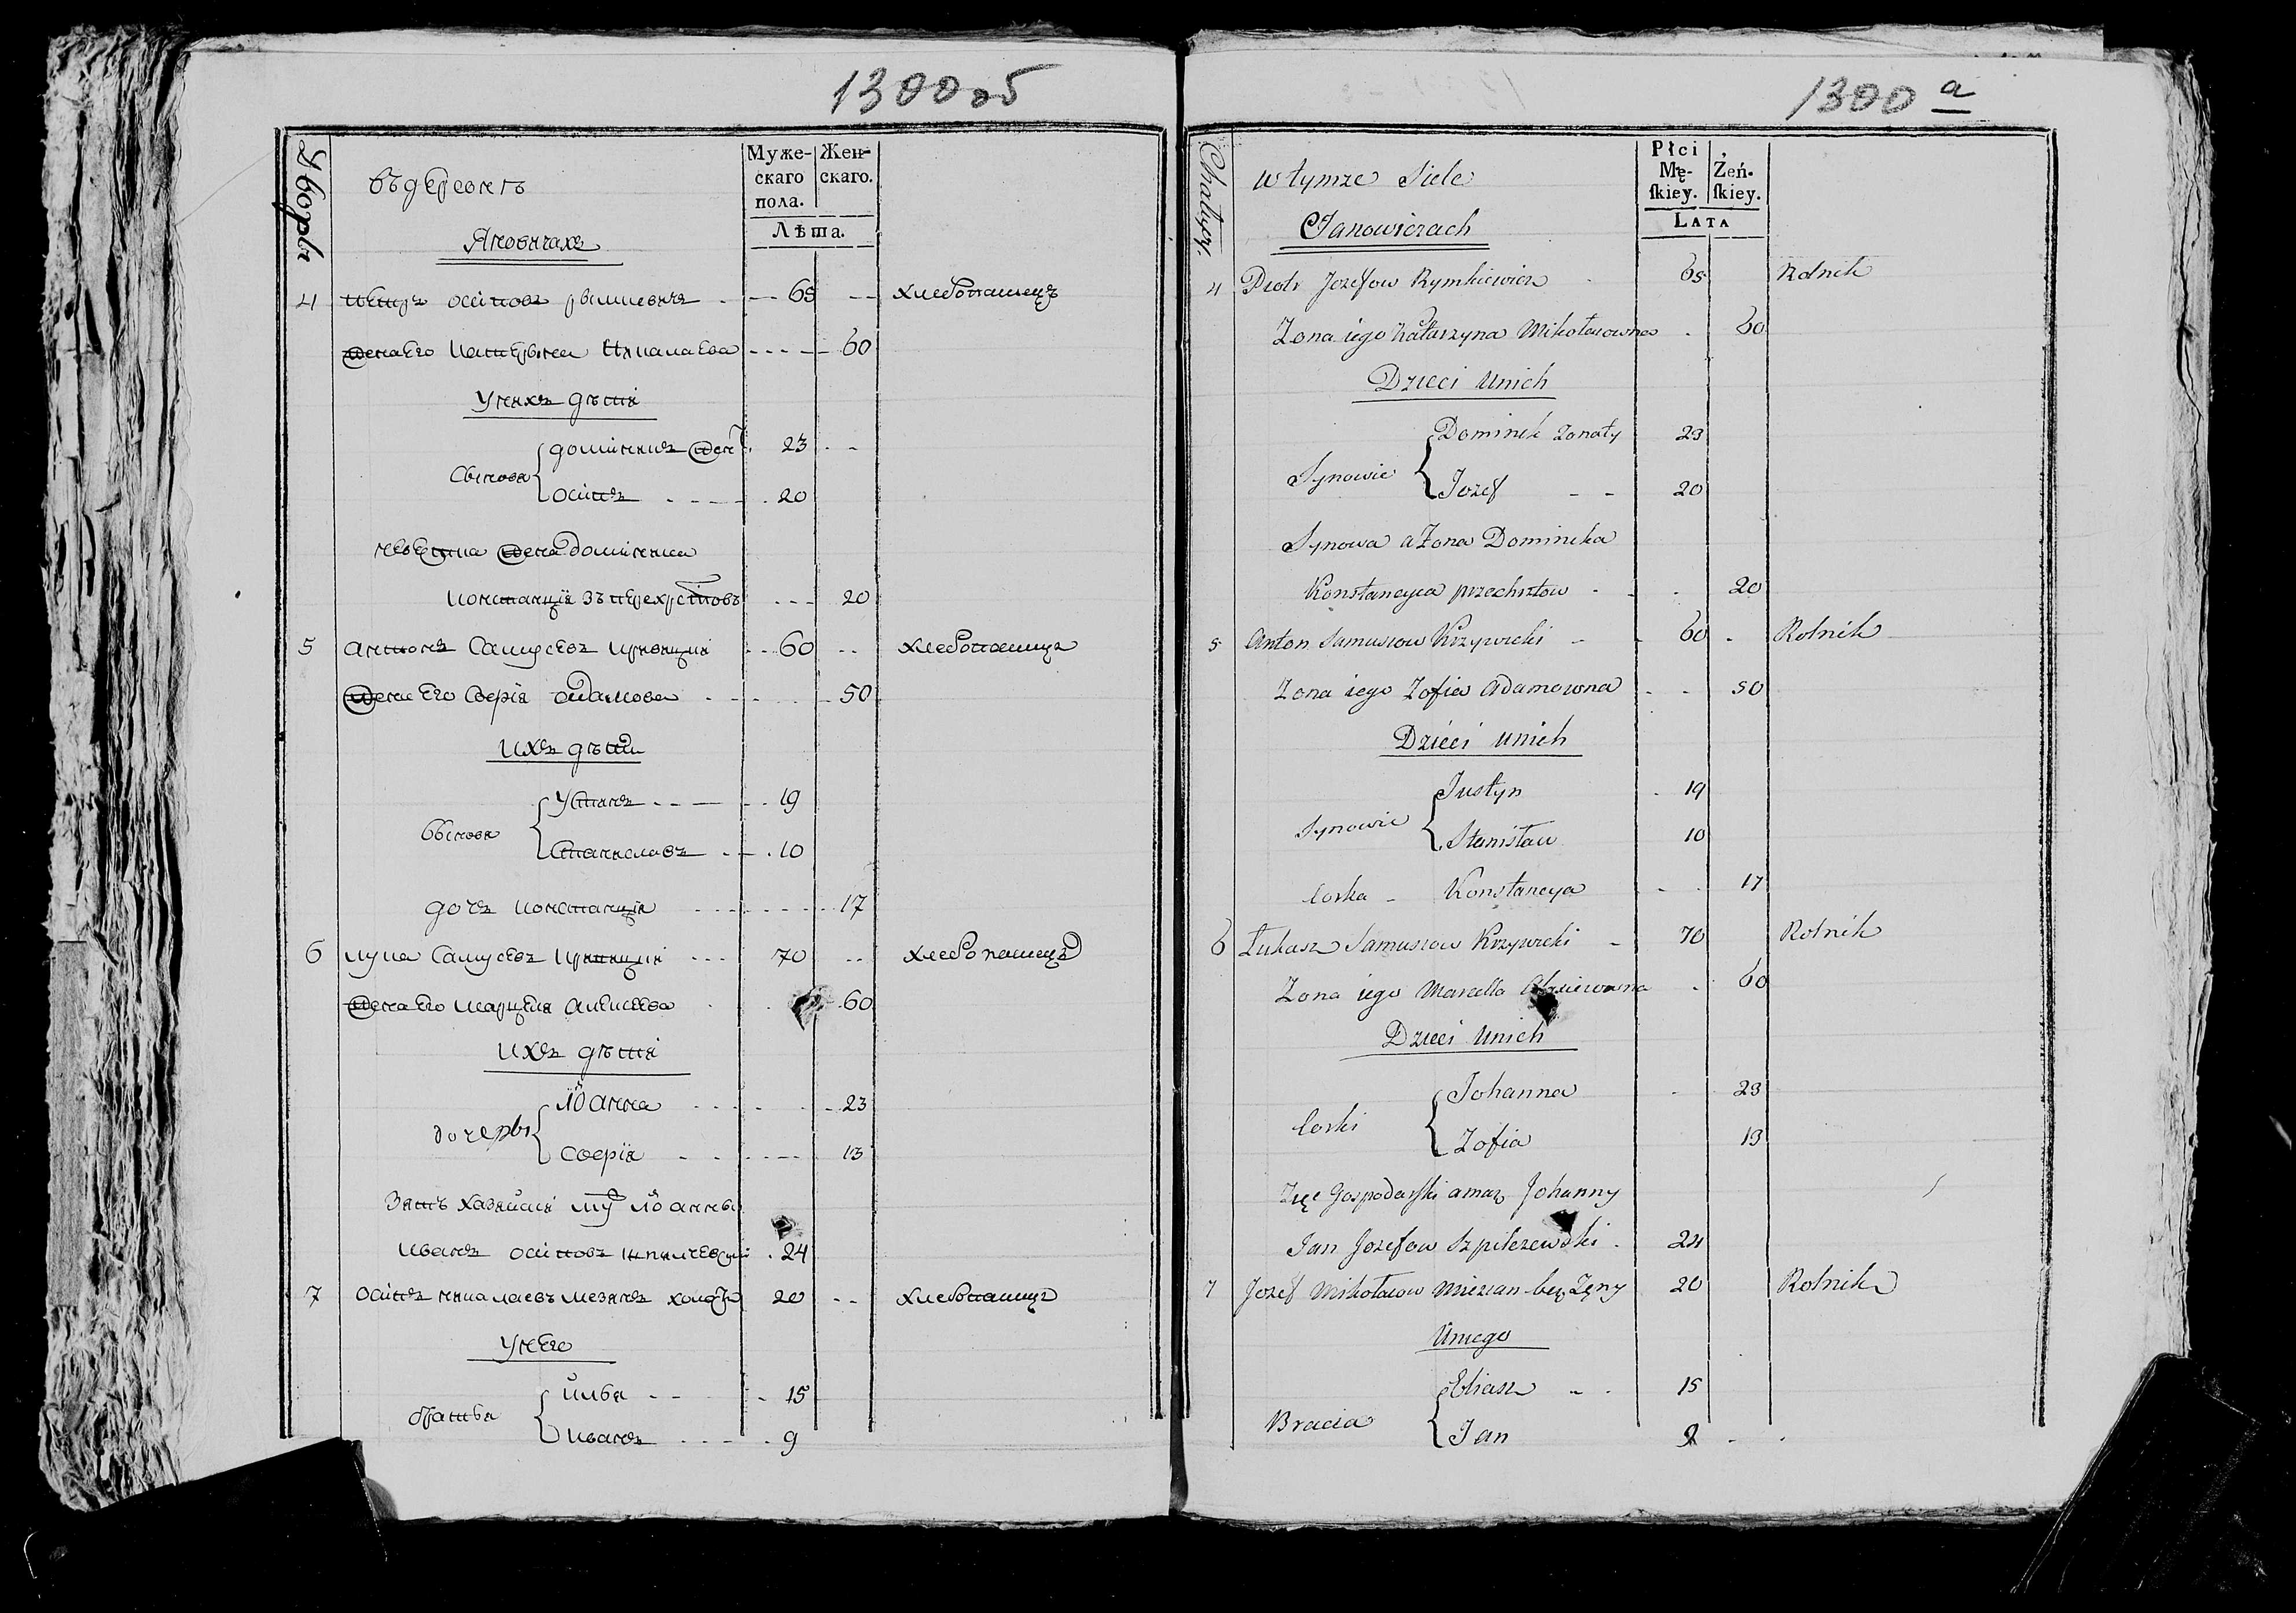 1300 об
Дворы
въ деревнѣ
Муже-скаго пола.
Жен-скаго.
Яновичахъ
Лѣта.
4 петръ осіповъ рымкевичъ 65 хлебопашецъ
жена Его катерына Николаева 60
У нихъ дѣти
Сынови
доміникъ жен 23
осіпъ 20
невестка жена домініка
констанція зъ перехрестовъ 20
5 антонъ Самусевъ крывицкі 60 хлебопашецъ
жена Его Софія адамова 50
Ихъ дѣти
Сынови
Устинъ 19
Станиславъ 10
дочъ констанція 17
6 лука Самусевъ 70 хлебопашецъ
жена Его Алексеева 60
Ихъ дѣти
дочеры
Юанна 23
Софія 13
Зять хазяйскі муж Юанны
Иванъ осіповъ шпилевскі 24
7 осіпъ николаевъ мезянъ холост 20 хлебопашецъ
У него
братья
илья 15
иванъ 9
1300 a
Chałupy.
w tymze Siele
Płci Mę-ſkiey.
Żeń-ſkiey.
Janowiczach
Lata
4 Piotr Jozefow Rymkiewicz 65 Rolnik
Zona iego Katarzyna Mikołaiowna 60
Dzieci Unich
Synowie
Dominik Zonaty 23
Jozef 20
Synowa a Zona Dominika
Konstancyia przechrztow 20
5 Anton Samusiow Krzywicki 60 Rolnik
Zona iego Zofia Adamowna 50
Dzieci Unich
Synowie
Justyn 19
Stanisław 10
Corka Konstancya 17
6 Łukasz Samusiow Krzywicki 70 Rolnik
Zona iego Marcella 60
Dzieci Unich
Corki
Johanna 23
Zofia 13
Zięć Gospodarski a mąz Johanny
Jan Jozefow Szpilczewski 24
7 Jozef Mikołaiow Miezian bez Zęny 20 Rolnik
Uniego
Bracia
Eliasz 15
Jan 9